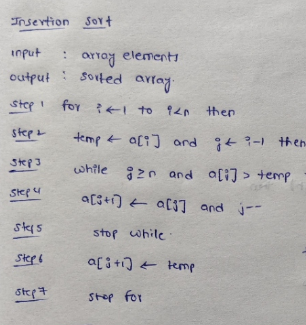 Insertion Sort
input : array elements
output : sorted array.
Step 1 for i ← 1 to i<n then
Step 2 temp ← a[i] and j ← i-1 then
Step 3 while j≥n and a[j] > temp
Step 4 a[j+1] ← a[j] and j--
Step 5 stop while.
Step 6 a[j+1] ← temp
Step 7 stop for